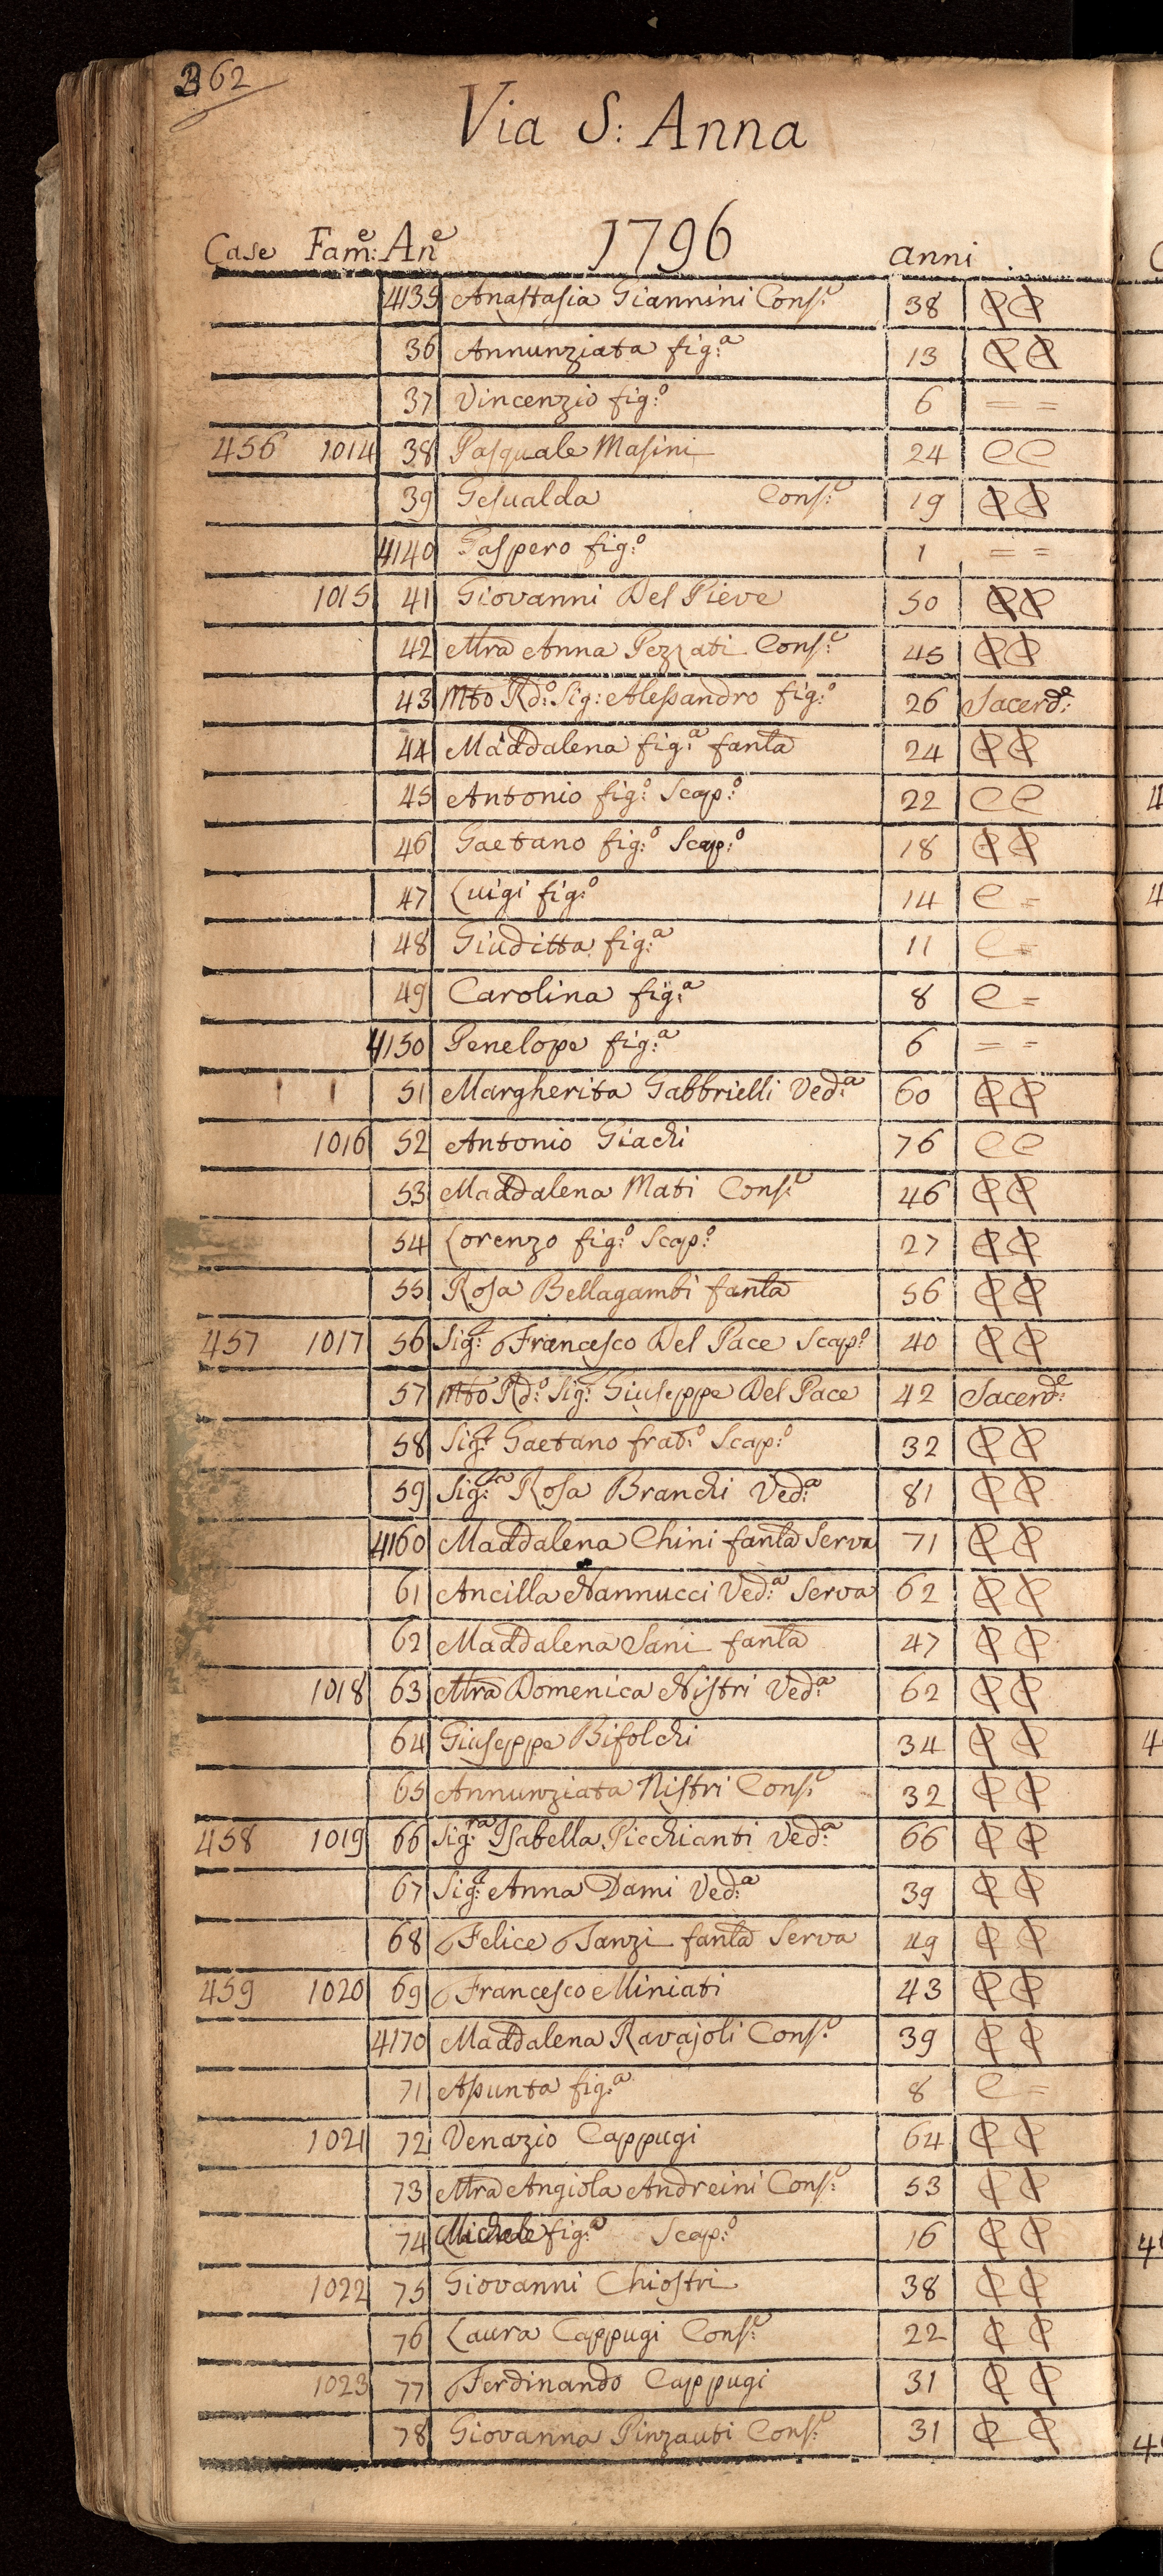 262
Via S: Anna
Case Fam:e An:e 1796 anni
4135 Anastasia Giannini Cons:e 38 CC
36 Annunziata fig:a 13 CC
37 Vincenzio fig:o 6 = =
456 1014 38 Pasquale Masini 24 CC
39 Gesualda Cons:e 19 CC
4140 Gaspero fig:o 1 = =
1015 41 Giovanni Del Pieve 50 CC
42 Mra Anna Pezzati Cons:e 45 CC
43 Mto Rdo: Sig: Alessandro fig:o 26 Sacerd:e
44 Maddalena fig:a fanla 24 CC
45 Antonio fig:o Scap:o 22 CC
46 Gaetano fig:o Scap:o 18 CC
47 Luigi fig:o 14 C =
48 Giuditta fig:a 11 C =
49 Carolina fig:a 8 C =
4150 Penelope fig:a 6 = =
51 Margherita Gabbrielli Ved:a 60 CC
1016 52 Antonio Giachi 76 CC
53 Maddalena Mati Cons:e 46 CC
54 Lorenzo fig:o Scap:o 27 CC
55 Rosa Bellagambi fanla 56 CC
457 1017 56 Sig:r Francesco Del Pace Scap:o 40 CC
57 Mto Rdo: Sig:r Giuseppe Del Pace 42 Sacerd:e
58 Sig:r Gaetano frat:o Scap:o 32 CC
59 Sig:ra Rosa Branchi Ved:a 81 CC
4160 Maddalena Chini fanla Serva 71 CC
61 Ancilla Nannucci Ved:a Serva 62 CC
62 Maddalena Sani fanla 47 CC
1018 63 Mra Domenica Nistri Ved:a 62 CC
64 Giuseppe Bifolchi 34 CC
65 Annunziata Nistri Cons:e 32 CC
458 1019 66 Sig:ra Isabella Picchianti Ved:a 66 CC
67 Sig:a Anna Dami Ved:a 39 CC
68 Felice Tanzi fanla Serva 49 CC
459 1020 69 Francesco Miniati 43 CC
4170 Maddalena Ravajoli Cons:e 39 CC
71 Asunta fig:a 8 C =
1021 72 Venazio Cappugi 64 CC
73 Mra Angiola Andreini Cons:e 53 CC
74 Michele fig:o Scap:o 16 CC
1022 75 Giovanni Chiostri 38 CC
76 Laura Cappugi Cons:e 22 CC
1023 77 Ferdinando Cappugi 31 CC
78 Giovanna Pinzauti Cons:e 31 CC